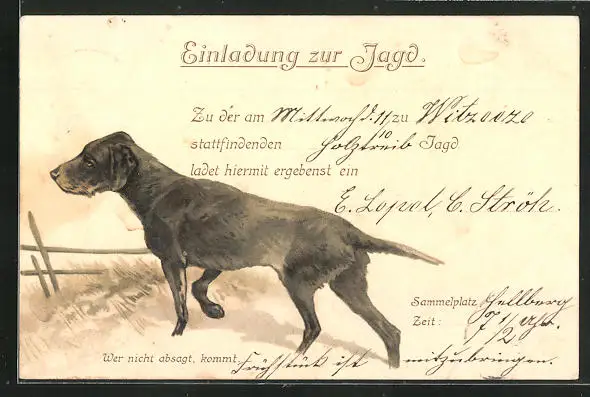 Einladung zur Jagd.
Zu der am Mittwoch d. 11/10 zu Witzeeze
stattfindenden Holztreib Jagd
ladet hiermit ergebenst ein
E. Lopal, C. Ströh.
Sammelplatz Hellberg
Zeit: 7 1/2 Uhr.
Wer nicht absagt, kommt Frühstück ist mitzubringen.